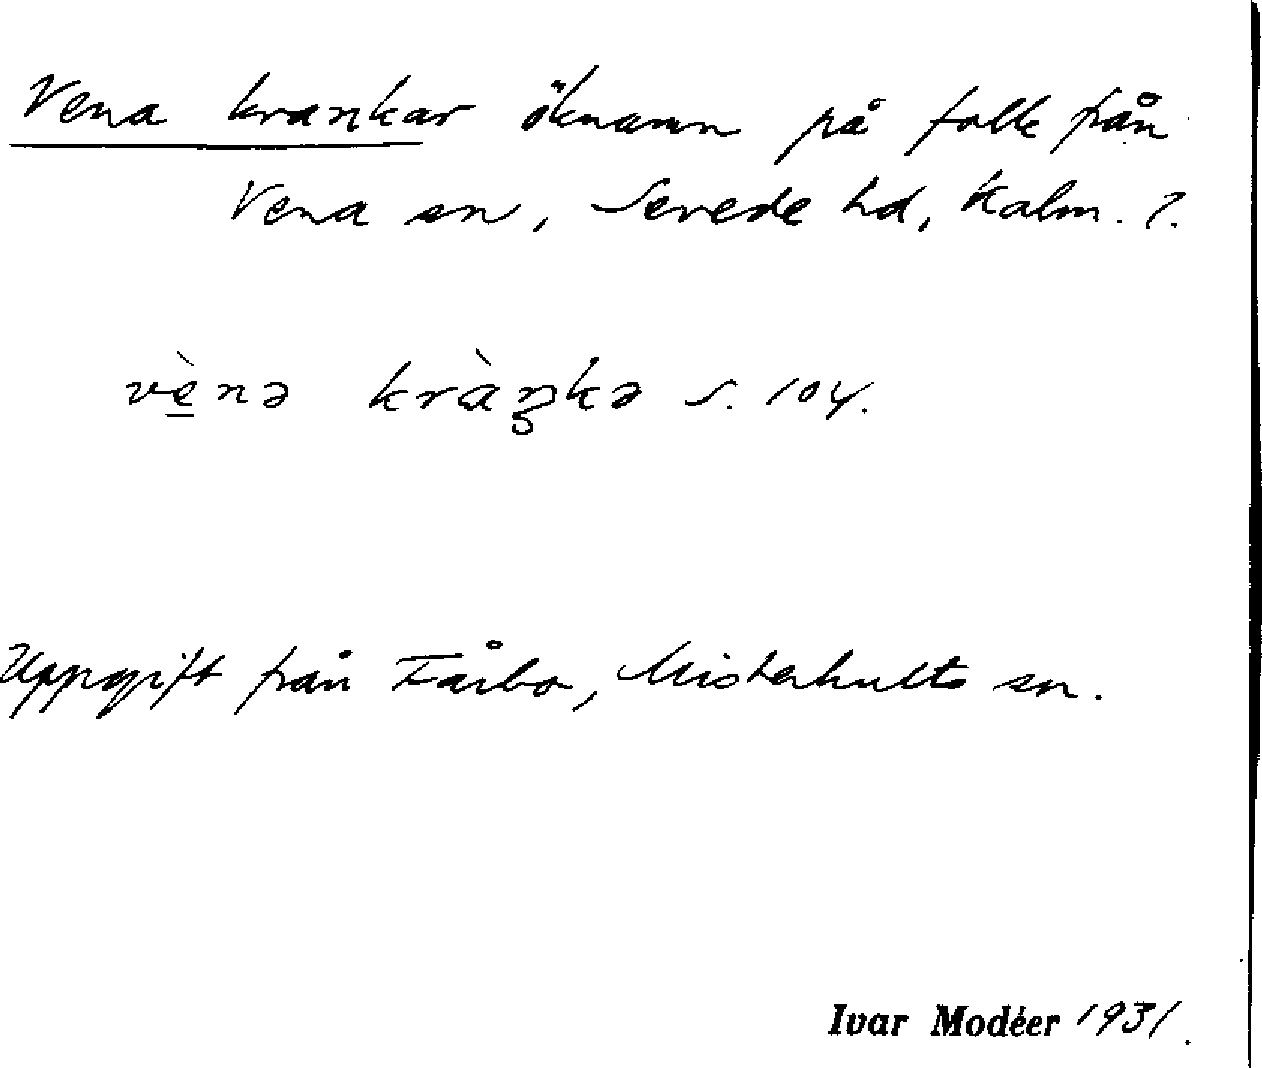 Vena krankar öknamn på folk från
Vena sn, Sevede hd, Kalm. l.
vè̱nə kràŋkə s. 104.
Uppgift från Fårbo, Misterhults sn.
Ivar Modéer 1931.